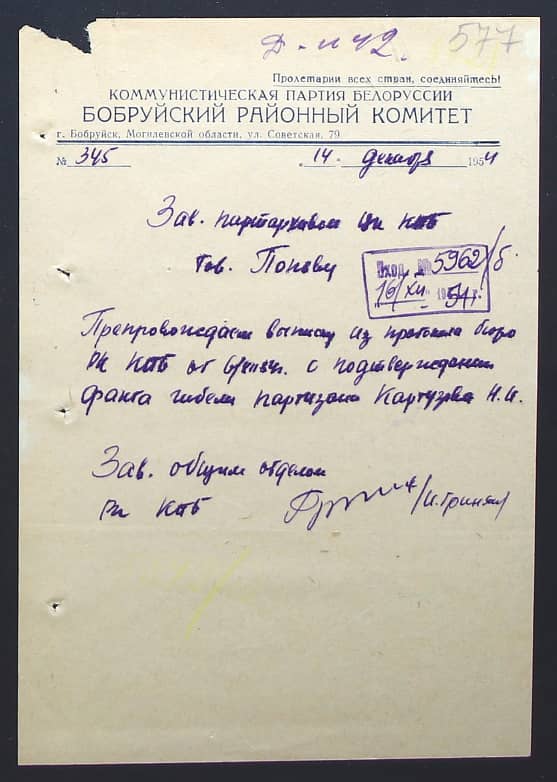 Д-н 42. 577
Пролетарии всех стран, соединяйтесь!
КОММУНИСТИЧЕСКАЯ ПАРТИЯ БЕЛОРУССИИ
БОБРУЙСКИЙ РАЙОННЫЙ КОМИТЕТ
г. Бобруйск, Могилевской области, ул. Советская, 79
№ 345 „14. декабря 1954
Зав. партархивом ЦК КПБ
тов. Попову
Вход. № 5962/б
16/XII 1954 г.
Препровождаем выписку из протокола бюро
РК КПБ от с подтверждением
факта гибели партизана Картузова Н.И.
Зав. общим отделом
РК КПБ /И. Гриняк/